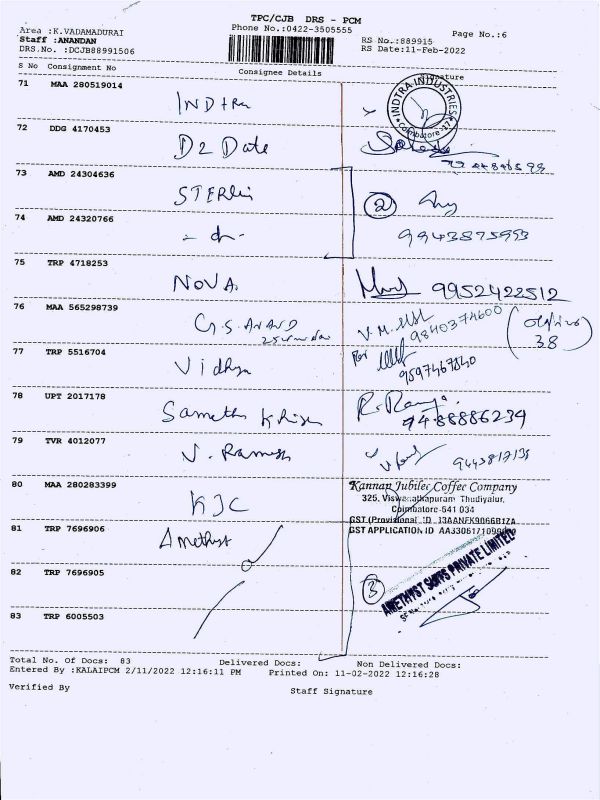 TPC/CJB DRS - PCM
Area :K.VADAMADURAI Phone No.:0422-3505555 Page No.:6
Staff :ANANDAN RS No.:889915
DRS.No. :DCJB88991506 RS Date:11-Feb-2022
S No Consignment No Consignee Details Signature
71 MAA 280519014
INDTRA INDUSTRIES
Coimbatore-17
72 DDG 4170453
D2 Date
73 AMD 24304636
STERlin
2
74 AMD 24320766
- do -
9943875993
75 TRP 4718253
NOVA 9952422512
76 MAA 565298739
G.S. ANAND
9840374600
38
77 TRP 5516704
Vidhya
9597467840
78 UPT 2017178
R. Ramya.
9488886234
79 TVR 4012077
V. Ramesh
80 MAA 280283399
KJC
Kannan Jubilee Coffee Company
325, Viswanathapuram Thudiyalur,
Coimbatore-641 034
GST (Provisional ID
GST APPLICATION ID
81 TRP 7696906
Amethyst
82 TRP 7696905
3
AMETHYST SUITS PRIVATE LIMITED
83 TRP 6005503
Total No. Of Docs: 83 Delivered Docs: Non Delivered Docs:
Entered By :KALAIPCM 2/11/2022 12:16:11 PM Printed On: 11-02-2022 12:16:28
Verified By Staff Signature